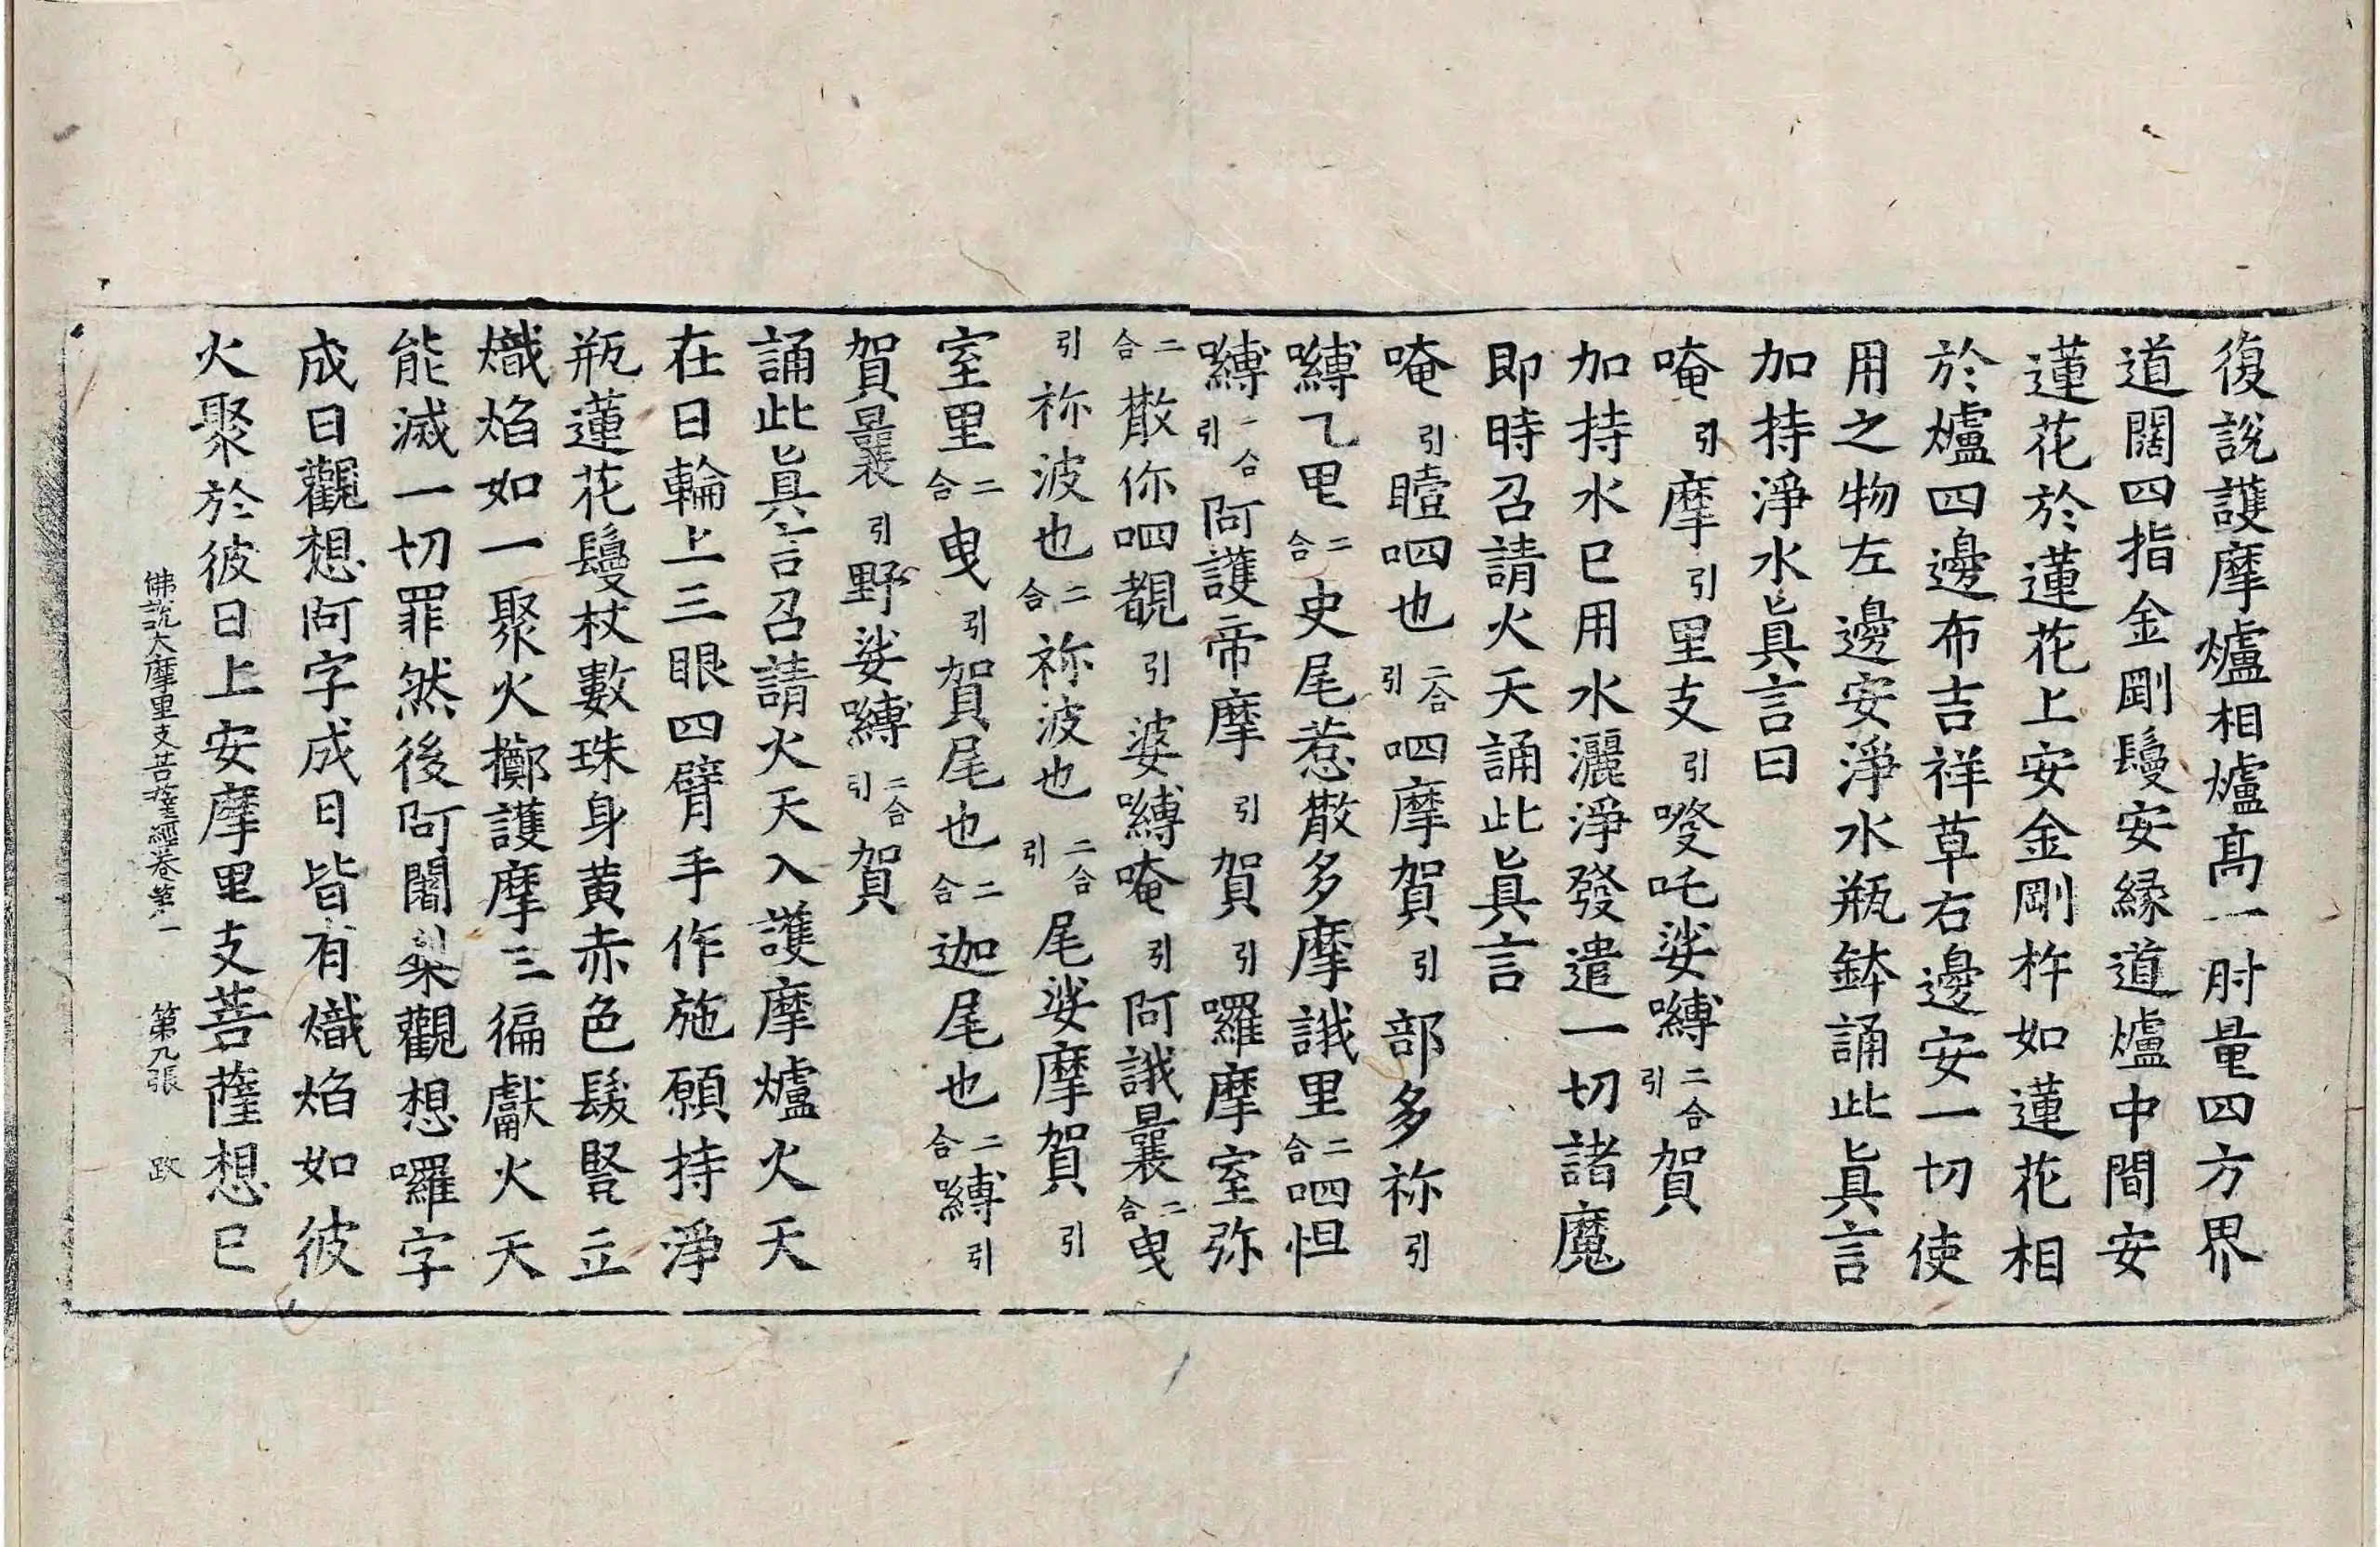 復說護摩爐相爐高一肘量四方界
道闊四指金剛鬘安緣道爐中間安
蓮花於蓮花上安金剛杵如蓮花相
於爐四邊布吉祥草右邊安一切使
用之物左邊安淨水瓶鉢誦此眞言
加持淨水眞言曰
唵引摩引里支引㗚吒娑嚩二合引賀
加持水巳用水灑淨發遣一切諸魔
即時召請火天誦此眞言
唵引曀呬也二合引呬摩賀引部多祢引
嚩乙里二合史尾惹散多摩誐里二合呬怛
嚩二合引阿護帝摩引賀引囉摩室弥
二合散你呬覩引婆嚩唵引阿誐曩二合曳
引祢波也二合祢波也二合引尾娑摩賀引
室里二合曳引賀尾也二合迦尾也二合嚩引
賀曩引野娑嚩二合引賀
誦此眞言召請火天入護摩爐火天
在日輪上三眼四臂手作施願持淨
瓶蓮花鬘杖數珠身黄赤色髮竪立
熾焰如一聚火擲護摩三徧獻火天
能滅一切罪然後阿闍梨觀想囉字
成日觀想阿字成日皆有熾焰如彼
火聚於彼日上安摩里支菩薩想巳
佛說大摩里支菩薩經卷第一 第九張 政